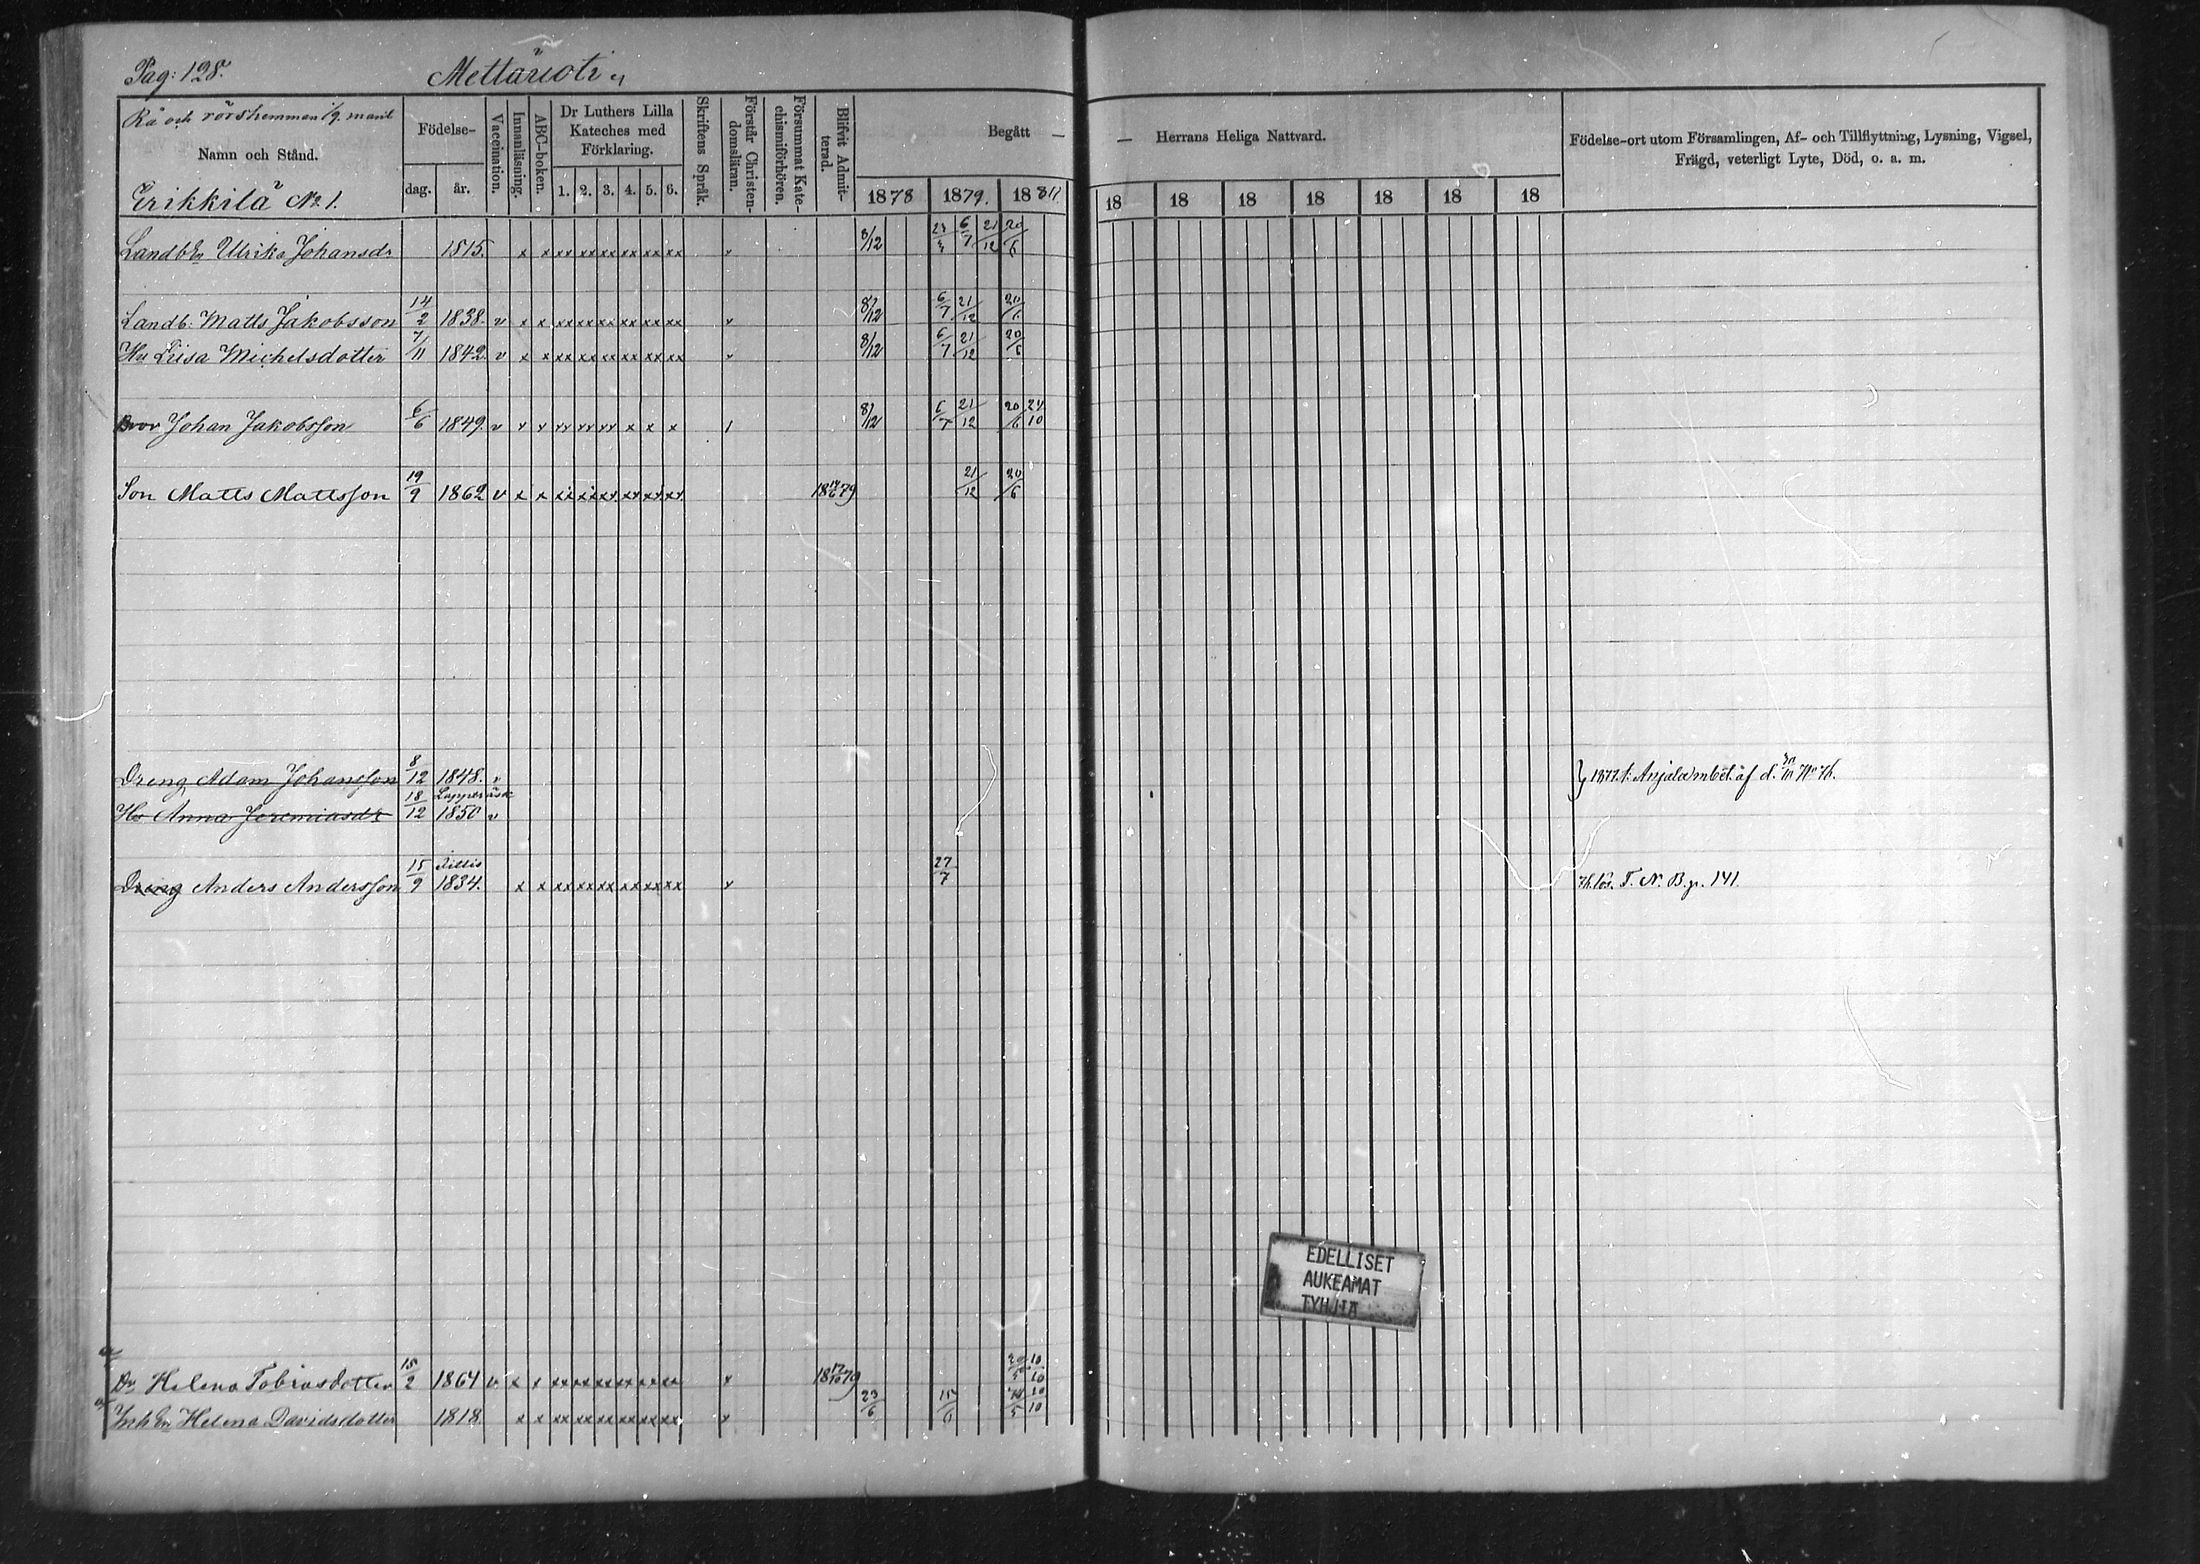 Pag: 128.
Mettäuoti
Rå och rörshemman 1/9 mantl
Namn och Stånd.
Erikkilä No 1.
Födelse-
dag. år.
Vaccination.
Innanläsning.
ABC-boken.
Dr Luthers Lilla Kateches med Förklaring.
1. 2. 3. 4. 5. 6.
Skriftens Språk.
Förstår Christen-domsläran.
Försummat Kate-chismiförhören.
Blifvit Admit-terad.
Begått —
1878 1879. 18
— Herrans Heliga Nattvard.
18 18 18 18 18 18 18
Födelse-ort utom Församlingen, Af- och Tillflyttning, Lysning, Vigsel,
Frägd, veterligt Lyte, Död, o. a. m.
Landb En Ulrika Johansdr 1815. x x xx xx xx xx xx xx v 8/12 6/7 21/12 20/6
Landb. Matts Jakobsson 14/2 1838. v x x xx xx xx xx xx xx v 8/12 6/7 21/12 20/6
Hu Liisa Michelsdotter 7/11 1842. v x x xx xx xx xx xx xx v 8/12 6/7 21/12 20/6
Bror Johan Jakobsson 6/6 1849. v v v xx xx xx x x x 1 8/12 6/7 21/12 20/6 24/10
Son Matts Mattsson 19/9 1862 v x x xx xx xx xx xx xx 18 79 21/12 20/6
Dreng Adam Johansson 8/12 1848. v
Hu Anna Jeremiasdr 18/12 Lappträsk 1850 v
Dreng Anders Andersson 15/9 1834. x x xx xx xx xx xx xx v 27/7 T. N. B. p. 141.
Dr Helena Tobiasdotter 15/2 1864 v x x xx xx xx xx xx xx x 18 17/10 79 10/10
Inh En Helena Davidsdotter 1818. x x xx xx xx xx xx xx x 23/6 10/10
EDELLISET
AUKEAMAT
TYHJIÄ